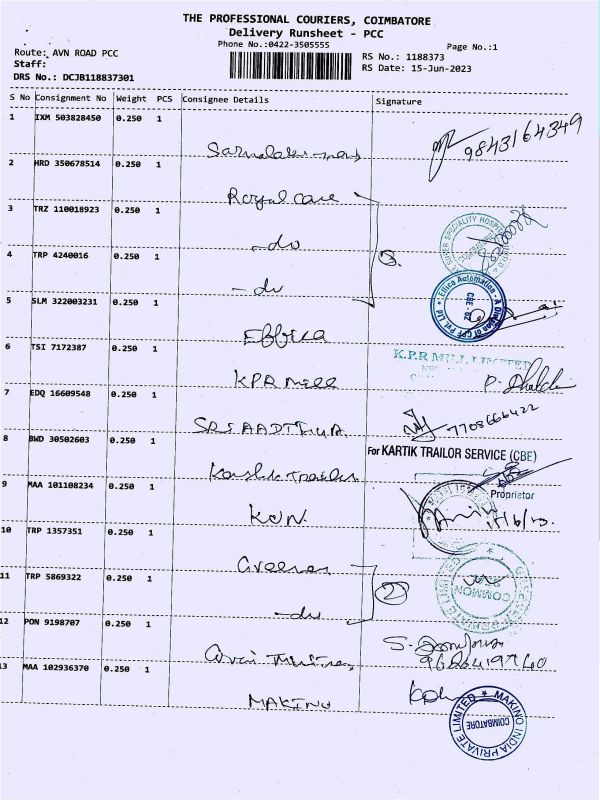 THE PROFESSIONAL COURIERS, COIMBATORE
Delivery Runsheet - PCC
Phone No.:0422-3505555
Page No.:1
Route: AVN ROAD PCC
RS No.: 1188373
Staff:
RS Date: 15-Jun-2023
DRS No.: DCJB118837301
S No Consignment No Weight PCS Consignee Details Signature
1 IXM 503828450 0.250 1
9843164349
2 HRD 350678514 0.250 1
Royal care
3 TRZ 110018923 0.250 1
-do
4 TRP 4240016 0.250 1 3.
-do
5 SLM 322003231 0.250 1
Effica Automation - A Division of CPF Pvt. Ltd
CBE - 29
Effica
6 TSI 7172387 0.250 1
K.P.R MILL LIMITED
KPR Mill
7 EDQ 16609548 0.250 1
7708666422
8 BWD 30502603 0.250 1
For KARTIK TRAILOR SERVICE (CBE)
Proprietor
9 MAA 101108234 0.250 1
KON.
10 TRP 1357351 0.250 1
11 TRP 5869322 0.250 1 2
COMMON
-do
12 PON 9198707 0.250 1
13 MAA 102936370 0.250 1
MAKINO
MAKINO INDIA PRIVATE LIMITED
COIMBATORE